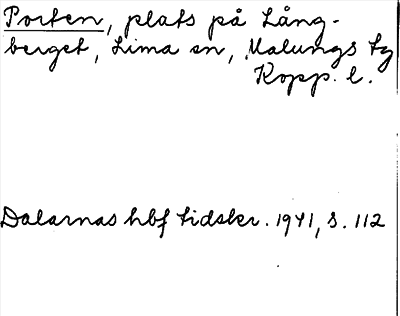 Porten, plats på Lång-
berget, Lima sn, Malungs tg
Kopp. l.
Dalarnas hbf tidskr. 1941, s. 112